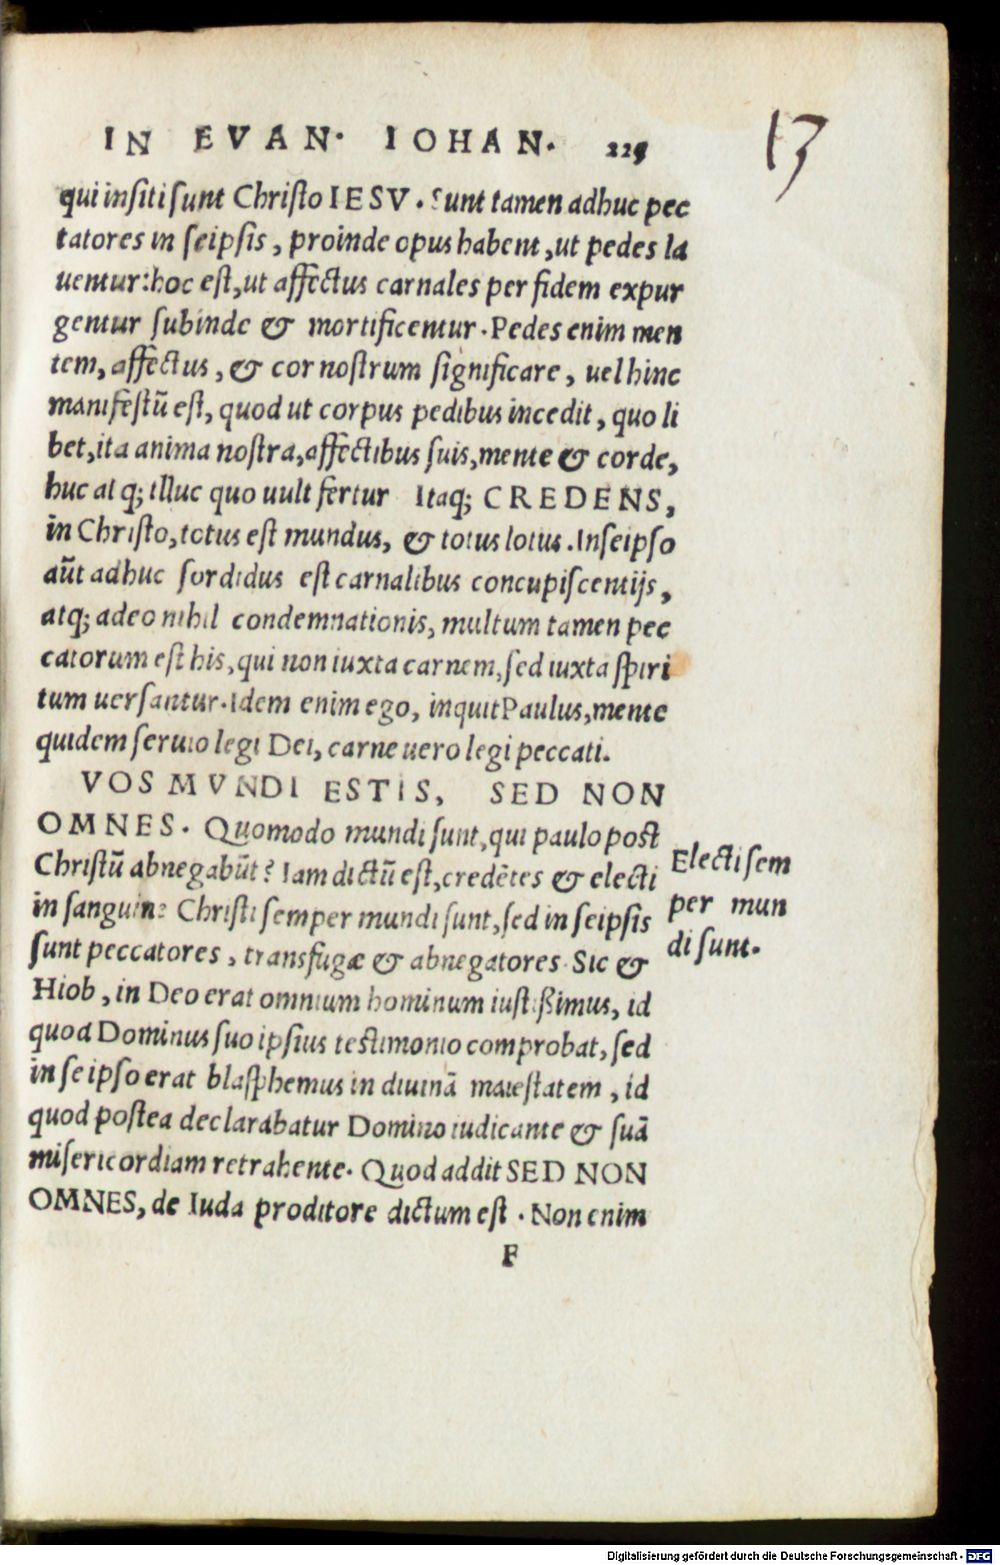 IN EVAN. IOHAN. 225
13
qui insiti sunt Christo IESV. Sunt tamen adhuc pec
tatores in seipsis, proinde opus habent, ut pedes la
uentur: hoc est, ut affectus carnales per fidem expur
gentur subinde & mortificentur. Pedes enim men
tem, affectus, & cor nostrum significare, uel hinc
manifestū est, quod ut corpus pedibus incedit, quo li
bet, ita anima nostra, affectibus suis, mente & corde,
huc atq; illuc quo uult fertur Itaq; CREDENS,
in Christo, totus est mundus, & totus lotus. In seipso
aūt adhuc sordidus est carnalibus concupiscentijs,
atq; adeo nihil condemnationis, multum tamen pec
catorum est his, qui non iuxta carnem, sed iuxta spiri
tum uersantur. Idem enim ego, inquit Paulus, mente
quidem seruio legi Dei, carne uero legi peccati.
VOS MVNDI ESTIS, SED NON
OMNES. Quomodo mundi sunt, qui paulo post
Christū abnegabūt? Iam dictū est, credētes & electi
in sanguine Christi semper mundi sunt, sed in seipsis
sunt peccatores, transfugæ & abnegatores. Sic &
Hiob, in Deo erat omnium hominum iustißimus, id
quod Dominus suo ipsius testimonio comprobat, sed
in se ipso erat blasphemus in diuinā maiestatem, id
quod postea declarabatur Domino iudicante & suā
misericordiam retrahente. Quod addit SED NON
OMNES, de Iuda proditore dictum est. Non enim
F
Electi sem
per mun
di sunt.
Digitalisierung gefördert durch die Deutsche Forschungsgemeinschaft - DFG